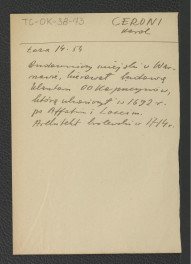 TC-OK-38-93
CERONI
Karol
Łoza 14. 53
Budowniczy miejski w War-
szawie, kierował budową
klasztoru OO Kapucynów,
którą ukończył w 1692 r.
po Affaitm i Loccim.
Architekt królewski w 1714 r.